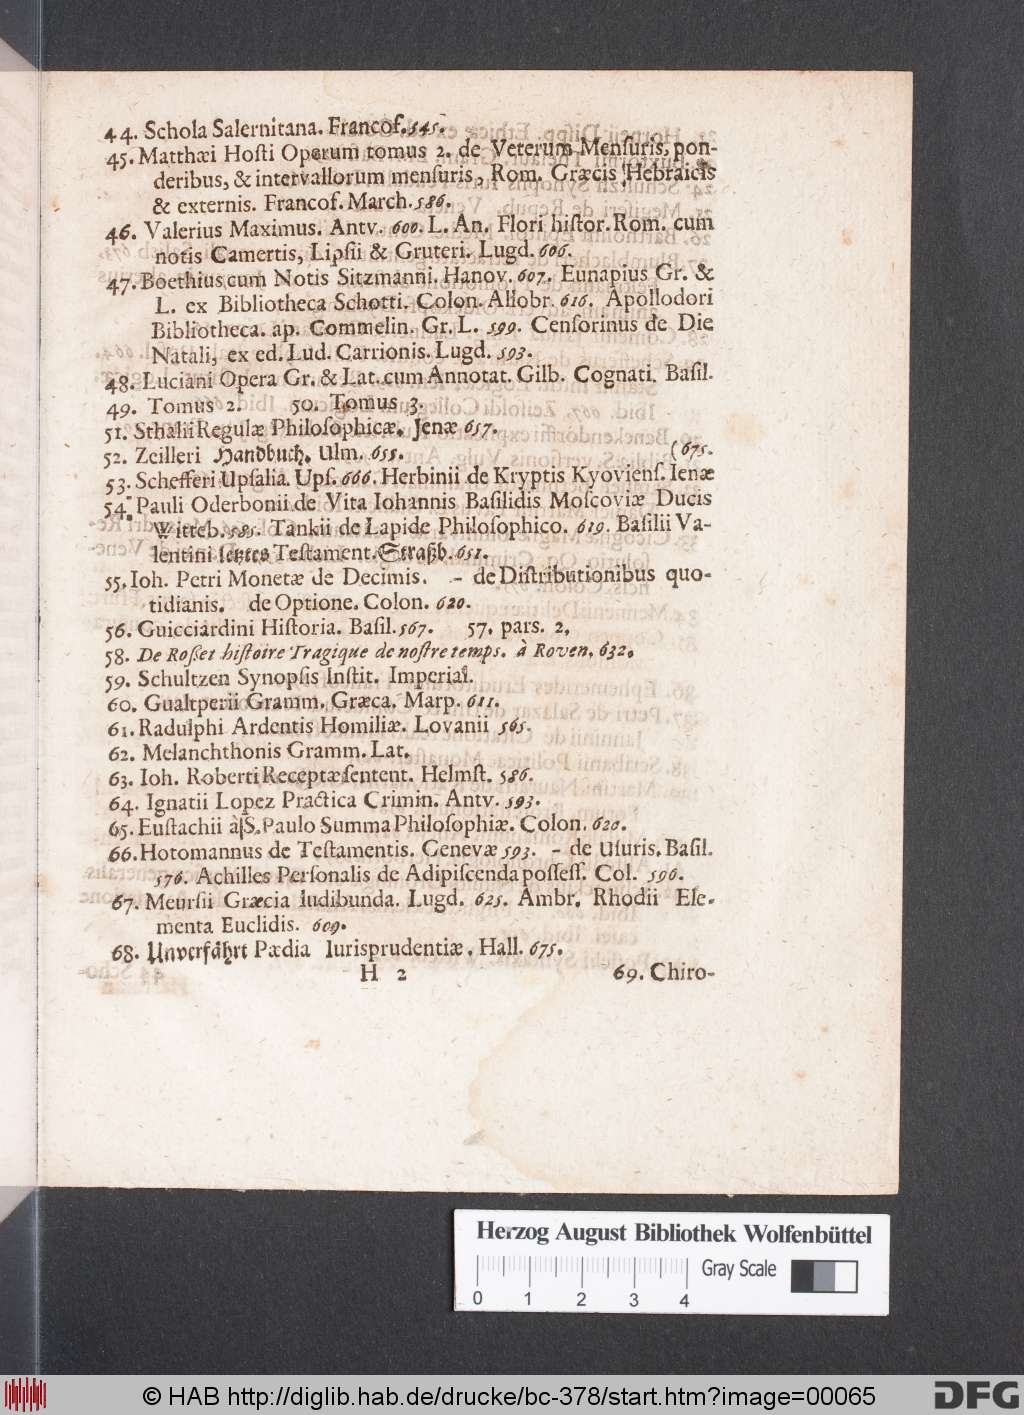 44. Schola Salernitana. Francof. 545.
45. Matthæi Hosti Operum tomus 2. de Veterum Mensuris, pon-
deribus, & intervallorum mensuris, Rom. Græcis Hebraicis
& externis. Francof. March. 586.
46. Valerius Maximus. Antv. 600. L. An. Flori histor. Rom. cum
notis Camertis, Lipsii & Gruteri. Lugd. 606.
47. Boethius cum Notis Sitzmanni. Hanov. 607. Eunapius Gr. &
L. ex Bibliotheca Schotti. Colon. Allobr. 616. Apollodori
Bibliotheca. ap. Commelin. Gr. L. 599. Censorinus de Die
Natali, ex ed. Lud. Carrionis. Lugd. 593.
48. Luciani Opera Gr. & Lat. cum Annotat. Gilb. Cognati. Basil.
49. Tomus 2. 50. Tomus 3.
51. Sthalii Regulæ Philosophicæ. Jenæ 657.
52. Zeilleri Handbuch. Ulm. 655. (675.
53. Schefferi Upsalia. Ups. 666. Herbinii de Kryptis Kyoviens. Ienæ
54. Pauli Oderbonii de Vita Iohannis Basilidis Moscoviæ Ducis
Witteb. 585. Tankii de Lapide Philosophico. 619. Basilii Va-
lentini letztes Testament. Straßb. 651.
55. Ioh. Petri Monetæ de Decimis. - de Distributionibus quo-
tidianis. de Optione. Colon. 620.
56. Guicciardini Historia. Basil. 567. 57. pars. 2.
58. De Roßet histoire Tragique de nostre temps. à Roven. 632.
59. Schultzen Synopsis Instit. Imperial.
60. Gualtperii Gramm. Græca. Marp. 611.
61. Radulphi Ardentis Homiliæ. Lovanii 565.
62. Melanchthonis Gramm. Lat.
63. Ioh. Roberti Receptæ sentent. Helmst. 586.
64. Ignatii Lopez Practica Crimin. Antv. 593.
65. Eustachii à S. Paulo Summa Philosophiæ. Colon. 620.
66. Hotomannus de Testamentis. Genevæ 593. - de Usuris. Basil.
576. Achilles Personalis de Adipiscenda possess. Col. 596.
67. Meursii Græcia ludibunda. Lugd. 625. Ambr. Rhodii Ele-
menta Euclidis. 609.
68. Unverfährt Pædia Iurisprudentiæ. Hall. 675.
H 2 69. Chiro-
Herzog August Bibliothek Wolfenbüttel
Gray Scale
0 1 2 3 4
© HAB http://diglib.hab.de/drucke/bc-378/start.htm?image=00065
DFG